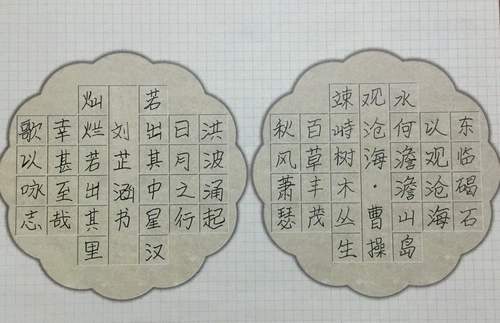 东临碣石
以观沧海
水何澹澹山岛
观沧海·曹操
竦峙树木丛生
百草丰茂
秋风萧瑟
洪波涌起
日月之行
若出其中星汉
刘芷涵书
灿烂若出其里
幸甚至哉
歌以咏志